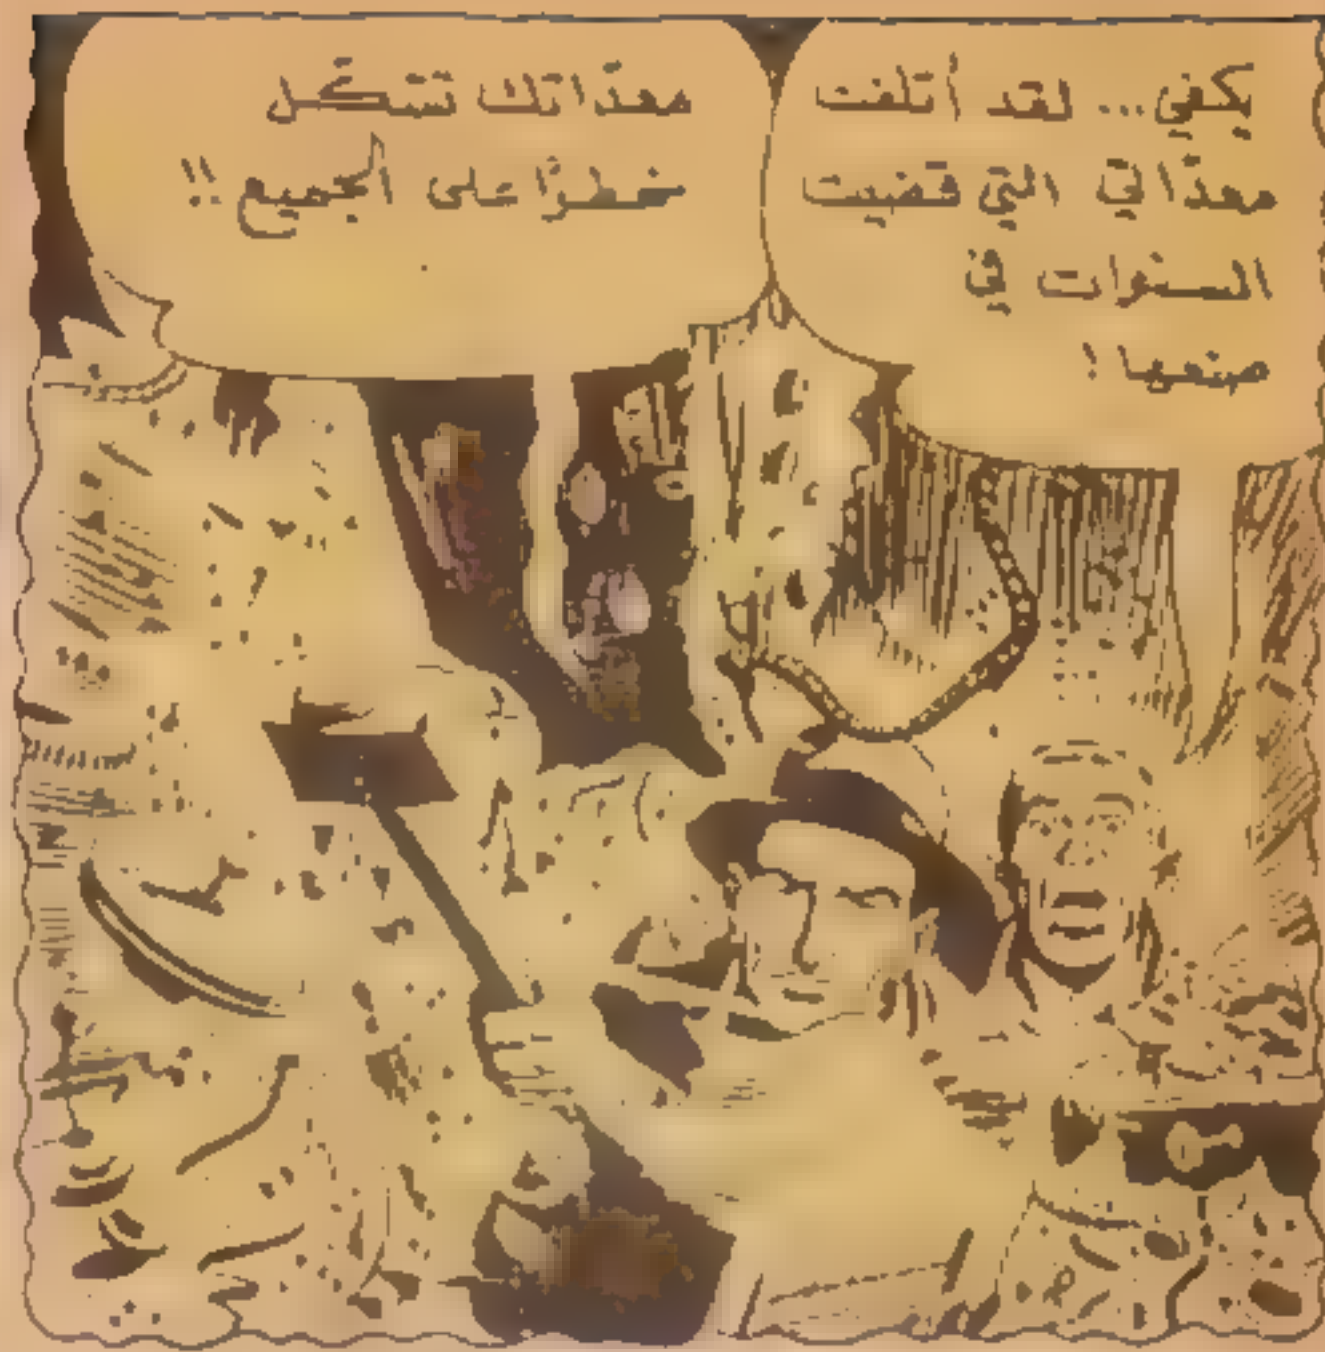 يكفي... لقد أتلفت
معدّاتي التي قضيت
السنوات في
صنعها!
معدّاتك تشكّل
خطرًا على الجميع!!